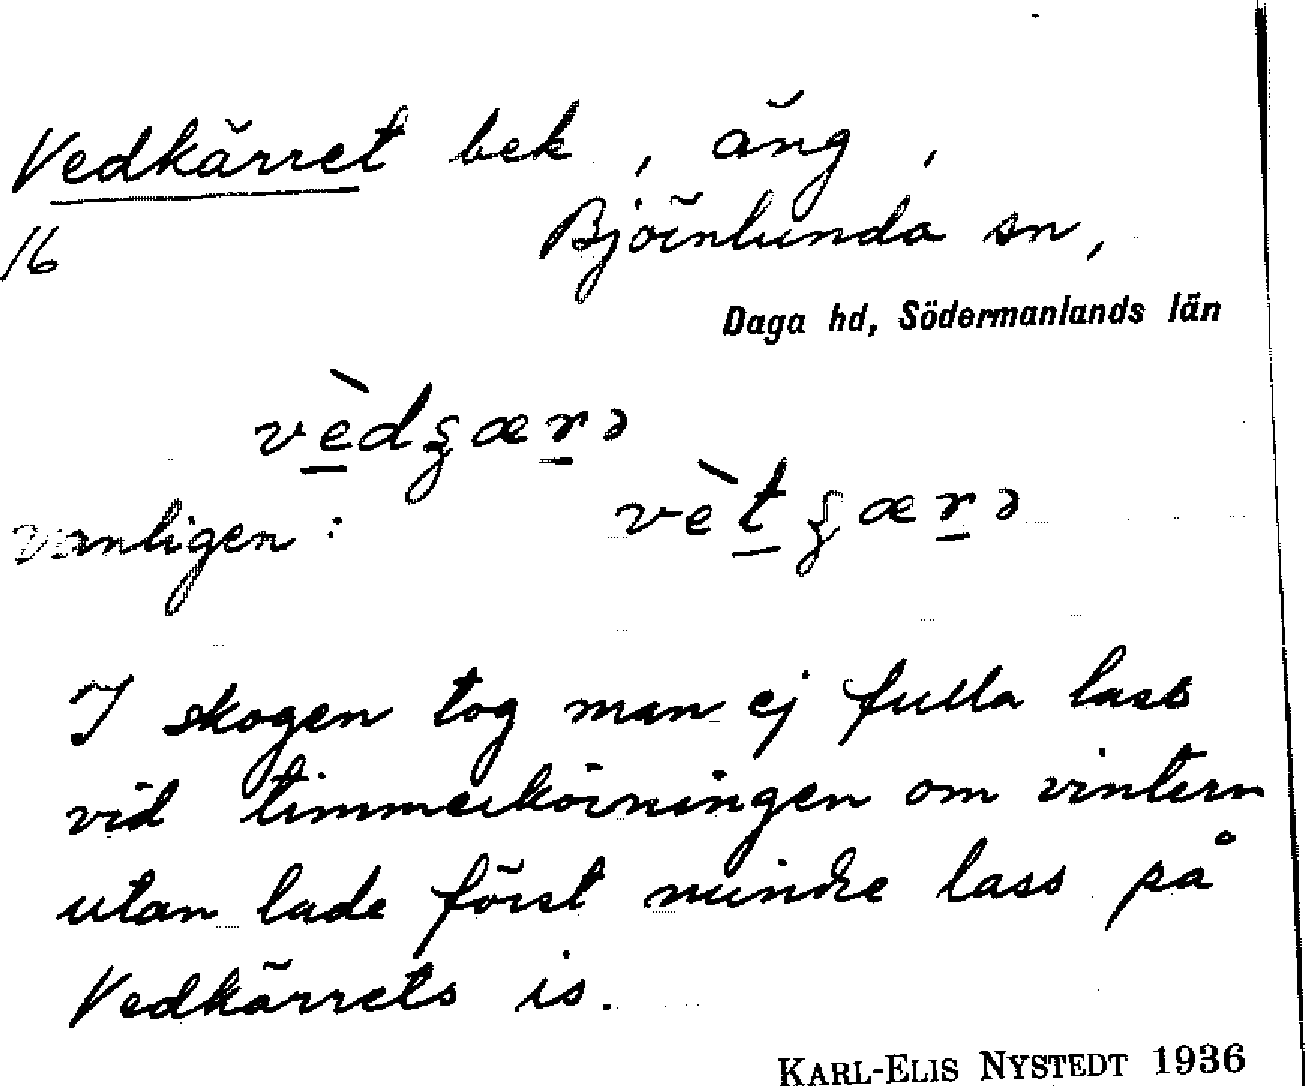 Vedkärret bek, äng,
16 Björnlunda sn,
Daga hd, Södermanlands län
vèdʒærə
vanligen: vètʒærə
I skogen tog man ej fulla lass
vid timmerkörningen om vintern
utan lade först mindre lass på
Vedkärrets is.
KARL-ELIS NYSTEDT 1936